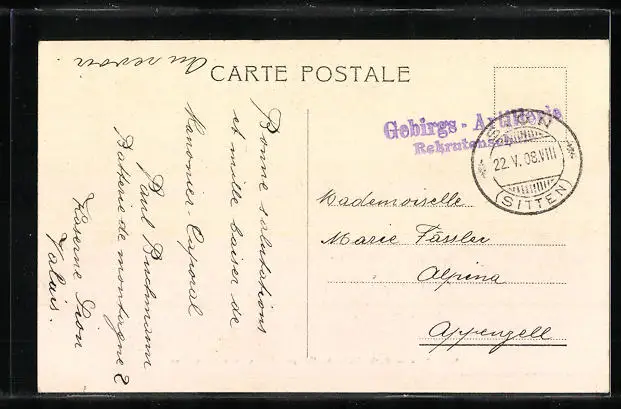 CARTE POSTALE
Au revoir.
Gebirgs - Artillerie
Rekrutenschule
SION
22.V.08.VIII
(SITTEN)
Mademoiselle
Marie Fässler
Alpina
Appenzell
Bonne salutations
et mille baiser de
Kanonier-Caporal
Paul Buchmann
Batterie de montagne 2
Kaserne Sion
Valais.